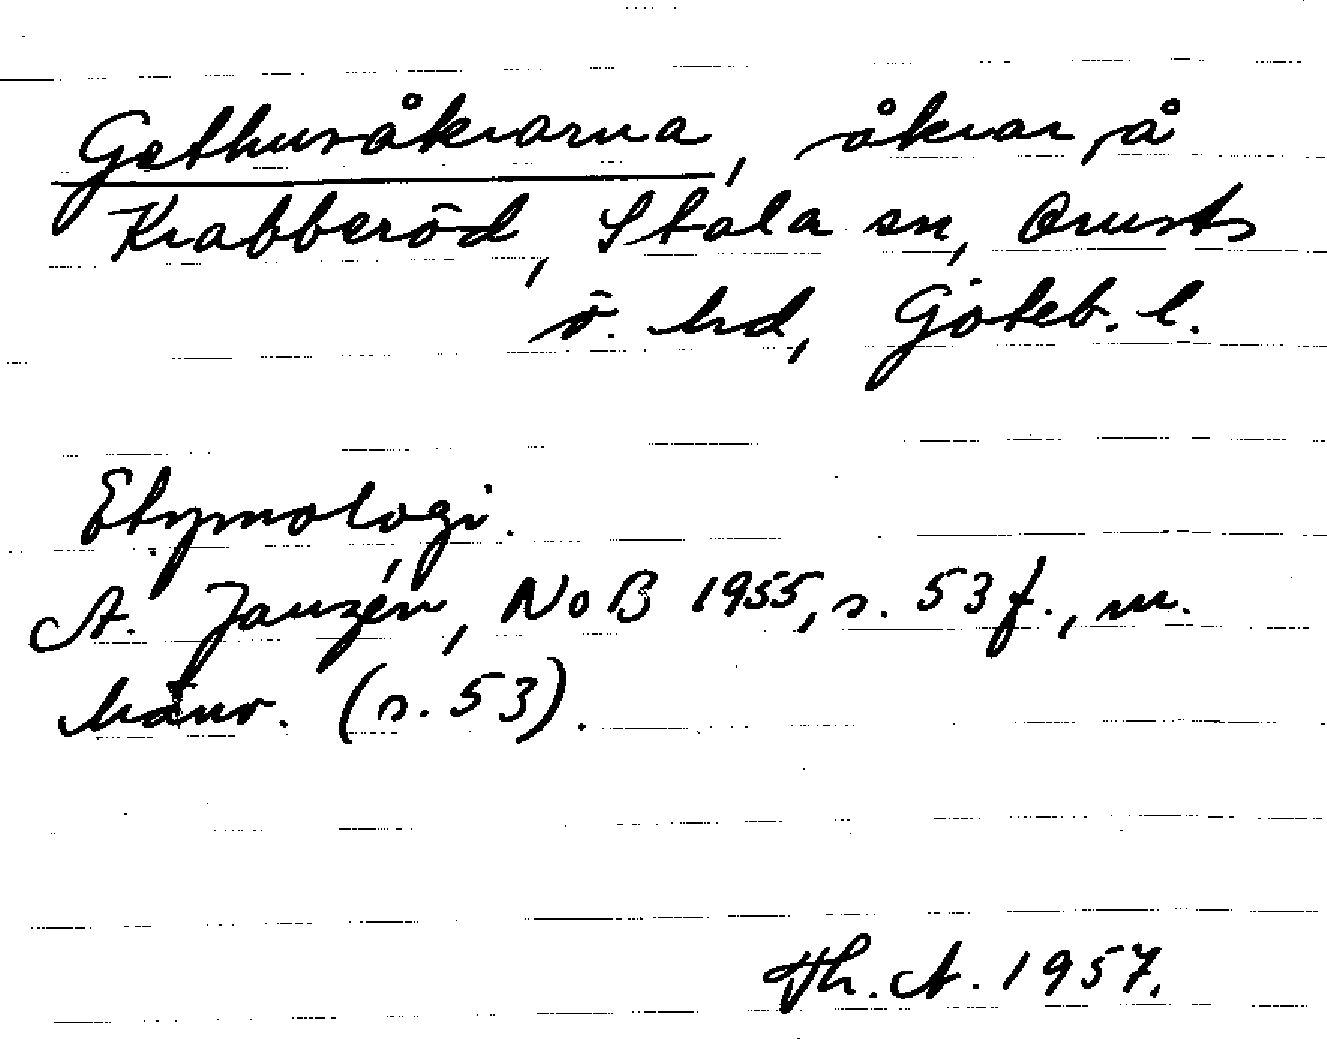 Gethusåkrarna, åkrar å
Krabberöd, Stala sn, Orusts
ö. hd, Göteb. l.
Etymologi.
A. Janzén, NoB 1955, s. 53 f., m.
hänv. (s. 53).
Th. A. 1957.